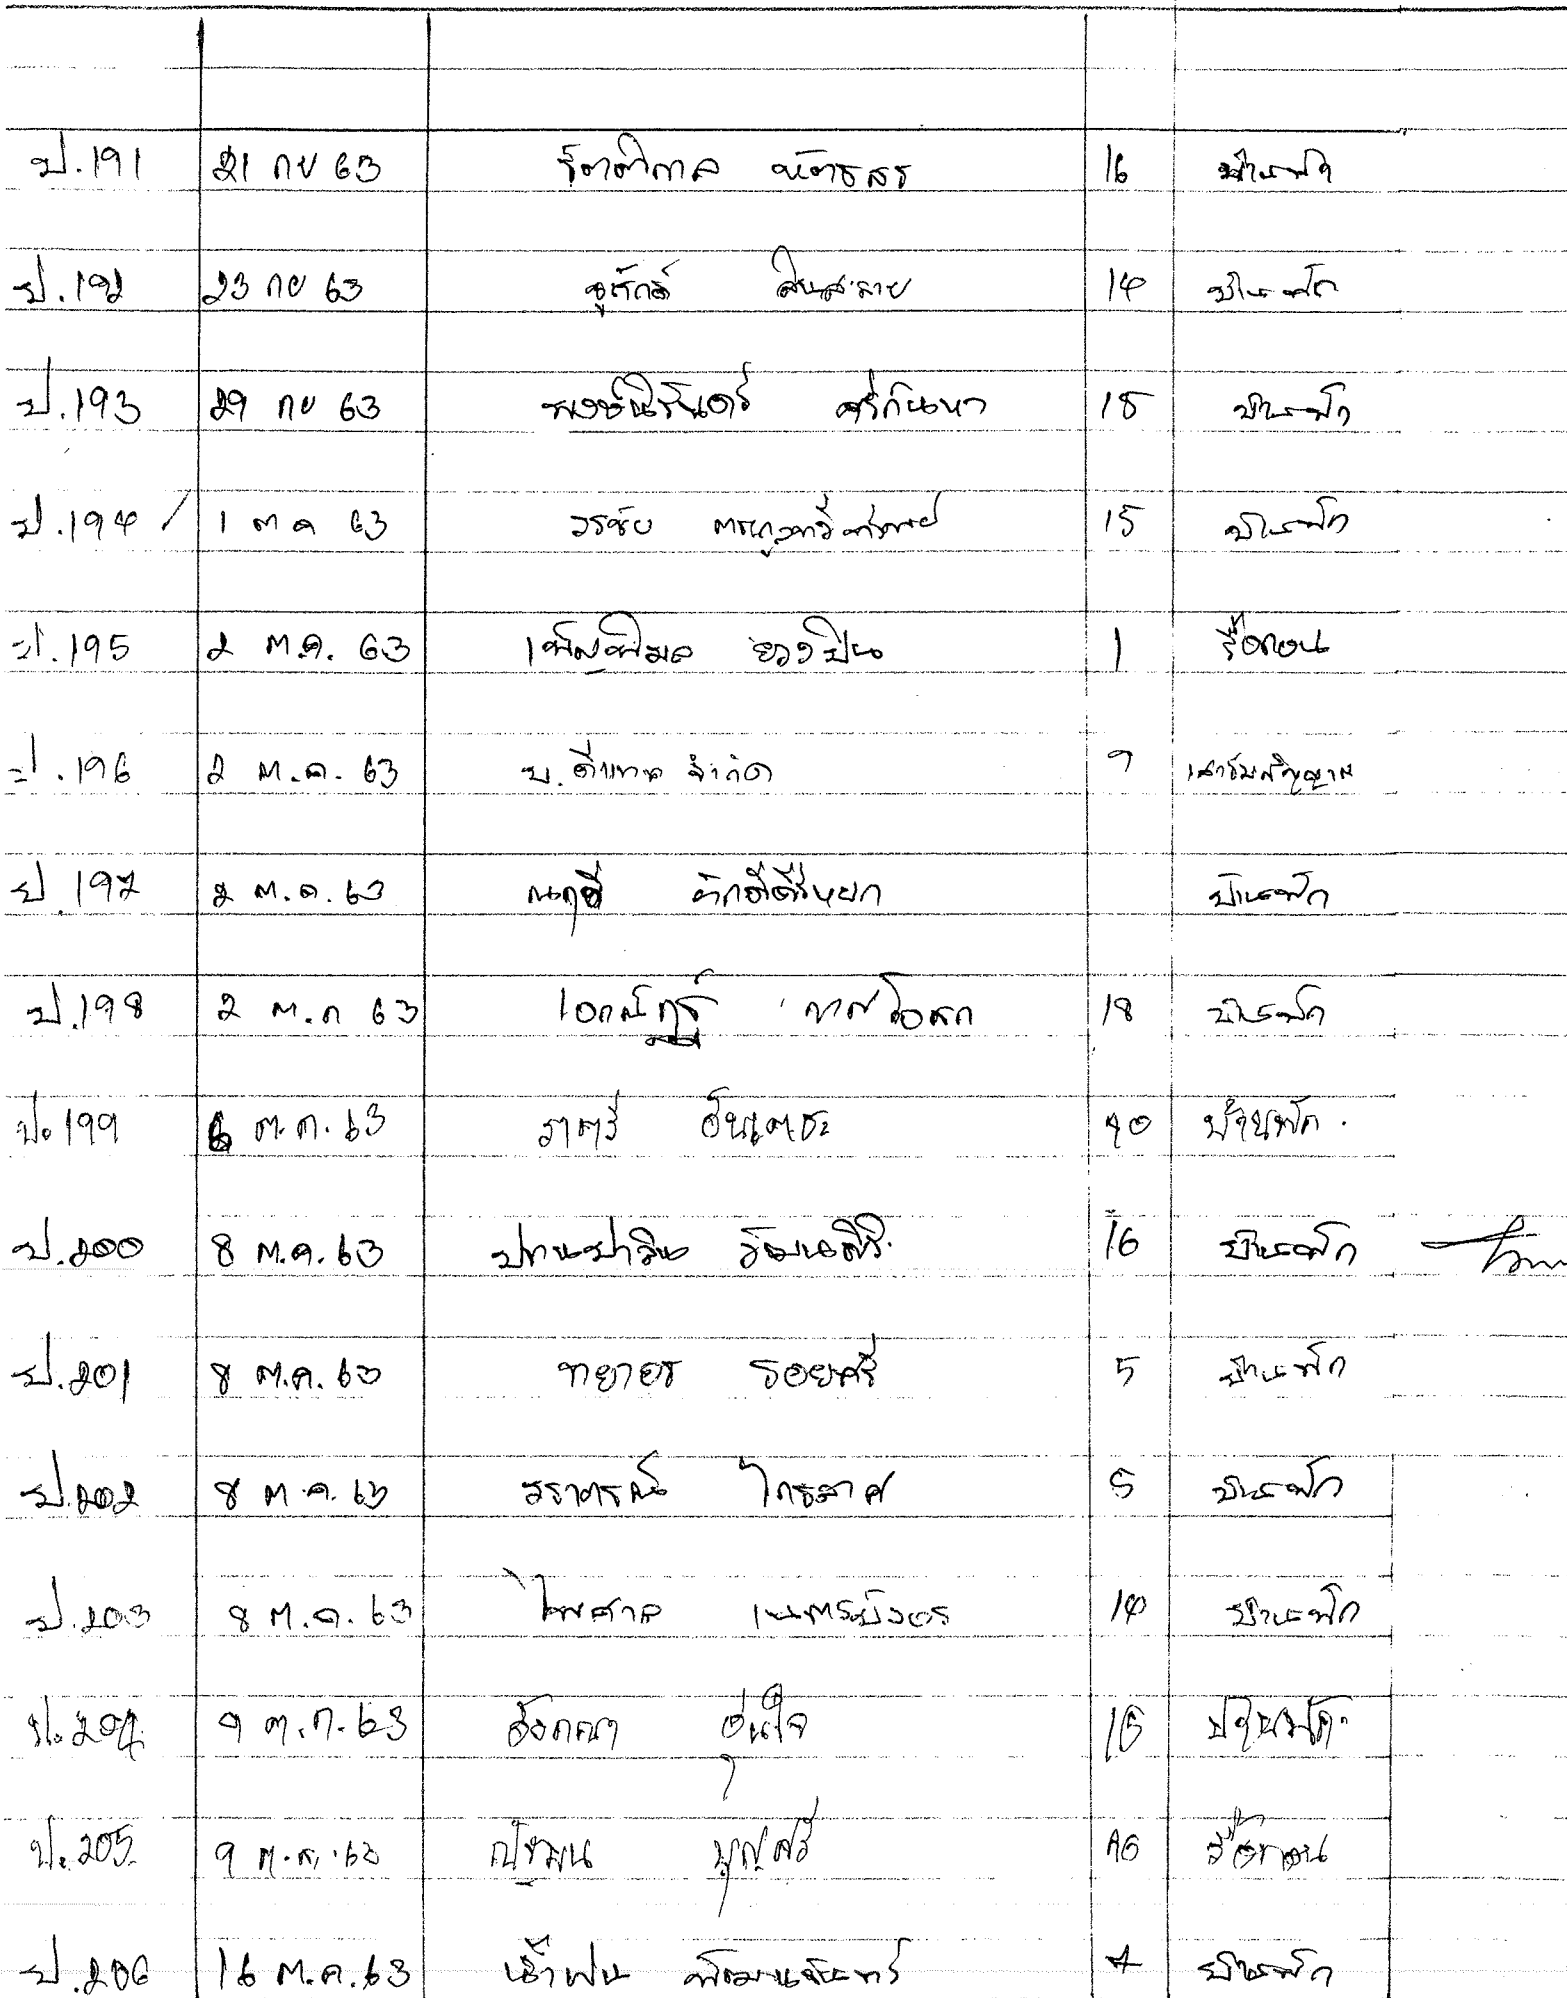 ป.191 21 กย 63 รัตติกาล 16 บ้านพัก
ป.192 23 กย 63 ชูศักดิ์ 14 บ้านพัก
ป.193 29 กย 63 พงษ์นิรันดร์ ศรีกันหา 15 บ้านพัก
ป.194 / 1 ต ค 63 วรชัย 15 บ้านพัก
ป.195 2 ต.ค. 63 เพ็ญพิมล ยวงปิน 1 รื้อถอน
ป.196 2 ต.ค. 63 บ.ดีแทค จำกัด 9 เสารับสัญญาณ
ป.197 2 ต.ค. 63 บ้านพัก
ป.198 2 ต.ค 63 เอกณัฏฐ์ 18 บ้านพัก
ป.199 6 ต.ค. 63 ราตรี อินเตชะ 10 บ้านพัก.
ป.200 8 ต.ค. 63 ปานปาลิน วัฒนสิริ 16 บ้านพัก
ป.201 8 ต.ค. 63 ทยาธร รอยศรี 5 บ้านพัก
ป.202 8 ต.ค. 63 วราภรณ์ ไกรมาศ 5 บ้านพัก
ป.203 8 ต.ค. 63 ไพศาล เนตรบังอร 14 บ้านพัก
ป.204 9 ต.ค. 63 อังคณา อุ่นใจ 15 บ้านพัก
ป.205 9 ต.ค. 63 ณัฐมน บุญศรี รื้อถอน
ป.206 16 ต.ค. 63 น้ำฝน พัฒนจันทร์ 4 บ้านพัก